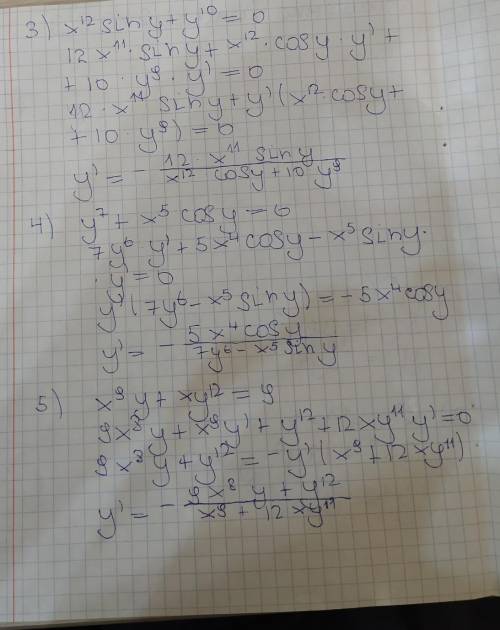 3) x¹² sin y + y¹⁰ = 0
12 x¹¹ · sin y + x¹² · cos y · y' +
+ 10 · y⁹ · y' = 0
12 · x¹¹ sin y + y' (x¹² · cos y +
+ 10 · y⁹) = 0
y' = - 12 · x¹¹ sin y / x¹² cos y + 10 y⁹
4) y⁷ + x⁵ cos y = 6
7y⁶ y' + 5x⁴ cos y - x⁵ sin y ·
· y' = 0
y' (7y⁶ - x⁵ sin y) = - 5x⁴ cos y
y' = - 5x⁴ cos y / 7y⁶ - x⁵ sin y
5) x⁹y + xy¹² = 9
9x⁸y + x⁹y' + y¹² + 12xy¹¹ y' = 0
9x⁸y + y¹² = -y' (x⁹ + 12xy¹¹)
y' = - 9x⁸y + y¹² / x⁹ + 12xy¹¹